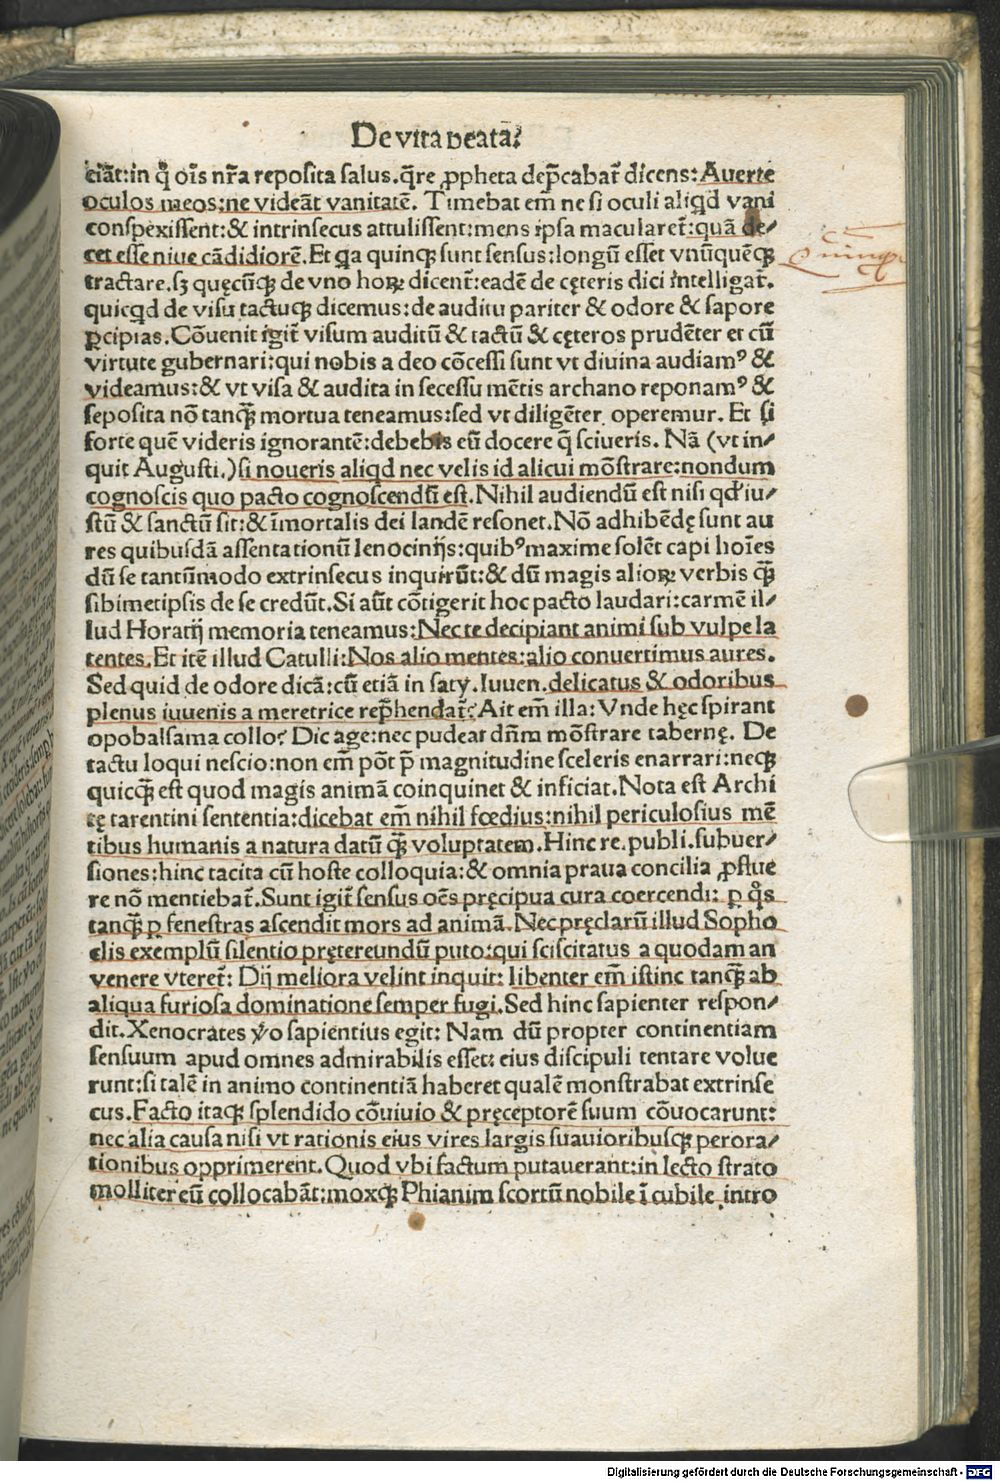 De vita beata.
ciāt:in q̄ oīs nr̄a reposita salus.q̄re ꝓpheta dep̄cabat᷑ dicens:Auerte
oculos meos:ne videāt vanitatē. Timebat em̄ ne si oculi aliqd vani
conspexissent:& intrinsecus attulissent:mens ipsa macularet᷑:quā de/
cet esse niue cādidiorē.Et qa quinqꝫ sunt sensus:longū esset vnūquēqꝫ
tractare.sꝫ quęcūqꝫ de vno hoꝝ dicent᷑:eadē de cęteris dici intelligat᷑.
quicqd de visu tactuqꝫ dicemus:de auditu pariter & odore & sapore
ꝑcipias.Cōuenit igit᷑ visum auditū & tactū & cęteros prudēter et cū
virtute gubernari:qui nobis a deo cōcessi sunt vt diuina audiamꝰ &
videamus:& vt visa & audita in secessu mētis archano reponamꝰ &
seposita nō tanqꝫ mortua teneamus:sed vt diligēter operemur. Et si
forte quē videris ignorantē:debebis eū docere q̄ sciueris. Nā (vt in/
quit Augusti.)si noueris aliqd nec velis id alicui mōstrare:nondum
cognoscis quo pacto cognoscendū est.Nihil audiendū est nisi qd̛ iu/
stū & sanctū sit:& īmortalis dei laudē resonet.Nō adhibēdę sunt au
res quibusdā assentationū lenocinijs:quibꝰ maxime solēt capi hoīes
dū se tantūmodo extrinsecus inquirūt:& dū magis alioꝝ verbis qꝫ̄
sibimetipsis de se credūt.Si aūt cōtigerit hoc pacto laudari:carmē il/
lud Horatij memoria teneamus:Nec te decipiant animi sub vulpe la
tentes.Et itē illud Catulli:Nos alio mentes:alio conuertimus aures.
Sed quid de odore dicā:cū etiā in saty.Iuuen.delicatus & odoribus
plenus iuuenis a meretrice rep̄hendat᷑? Ait em̄ illa: Vnde hęc spirant
opobalsama collo? Dic age:nec pudeat dn̄m mōstrare tabernę. De
tactu loqui nescio:non em̄ pōt p̄ magnitudine sceleris enarrari:neqꝫ
quicqꝫ̄ est quod magis animā coinquinet & inficiat.Nota est Archi
tę tarentini sententia:dicebat em̄ nihil fœdius:nihil periculosius mē
tibus humanis a natura datū qꝫ̄ voluptatem.Hinc re.publi.subuer/
siones:hinc tacita cū hoste colloquia:& omnia praua concilia ꝓflue
re nō mentiebat᷑.Sunt igit᷑ sensus oēs pręcipua cura coercendi: ꝑ qͥs
tanqꝫ̄ ꝑ fenestras ascendit mors ad animā.Nec pręclarū illud Sopho
clis exemplū silentio pręterundū puto:qui sciscitatus a quodam an
venere vteret᷑: Dij meliora velint inquit: libenter em̄ istinc tanqꝫ̄ ab
aliqua furiosa dominatione semper fugi.Sed hinc sapienter respon/
dit.Xenocrates v̛o sapientius egit: Nam dū propter continentiam
sensuum apud omnes admirabilis esset: eius discipuli tentare volue
runt:si talē in animo continentiā haberet qualē monstrabat extrinse
cus.Facto itaqꝫ splendido cōuiuio & pręceptorē suum cōuocarunt:
nec alia causa nisi vt rationis eius vires largis suauioribusqꝫ perora/
tionibus opprimerent.Quod vbi factum putauerant:in lecto strato
molliter eū collocabāt:moxqꝫ Phianim scortū nobile ī cubile intro
Digitalisierung gefördert durch die Deutsche Forschungsgemeinschaft - DFG